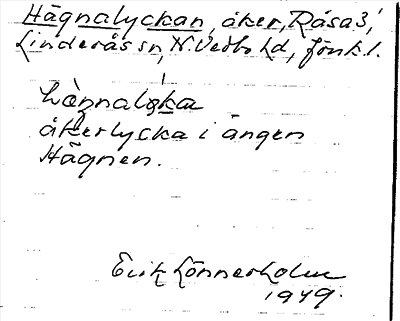 Hägnalyckan, åker, Råsa 3,
Linderås sn, N. Vedbo hd, Jönk l.
åkerlycka i ängen
Hägnen.
Erik Lönnerholm
1949.